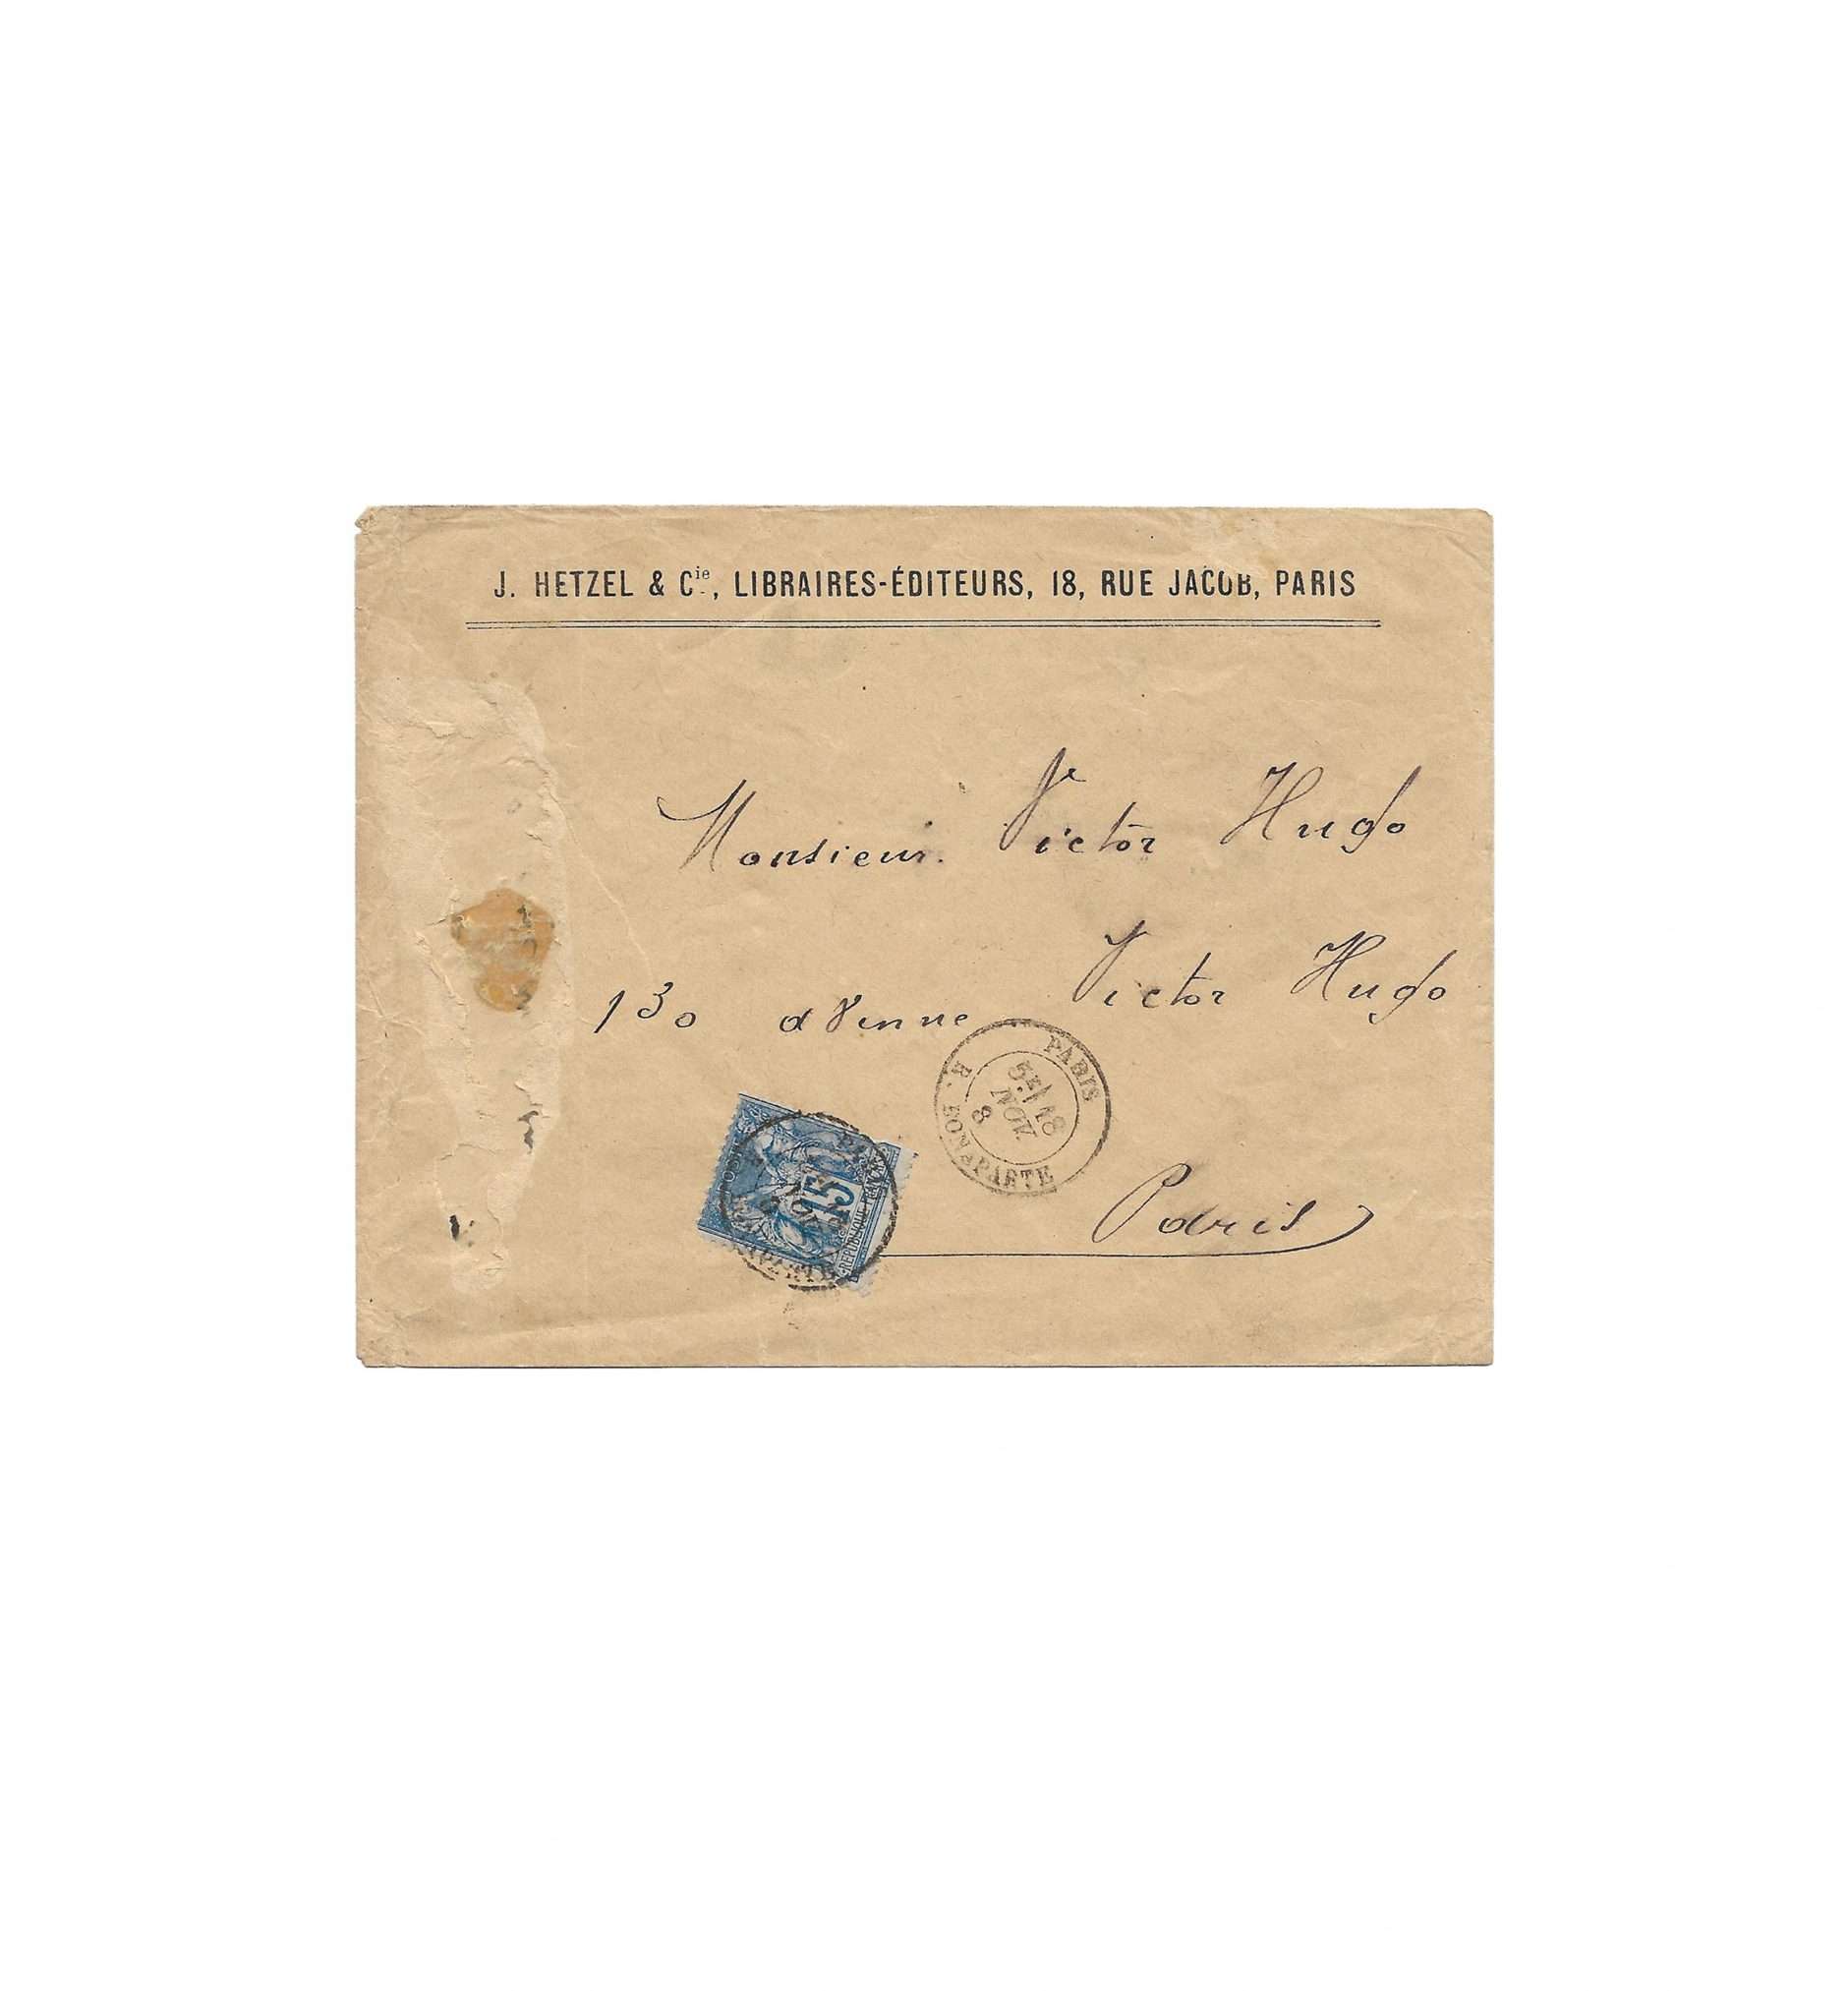 J. HETZEL & Cie, LIBRAIRES-ÉDITEURS, 18, RUE JACOB, PARIS
Monsieur. Victor Hugo
130 avenue Victor Hugo
PARIS
R. BONAPARTE
5E
18
NOV.
8
15
REPUBLIQUE FRANÇAISE
Paris